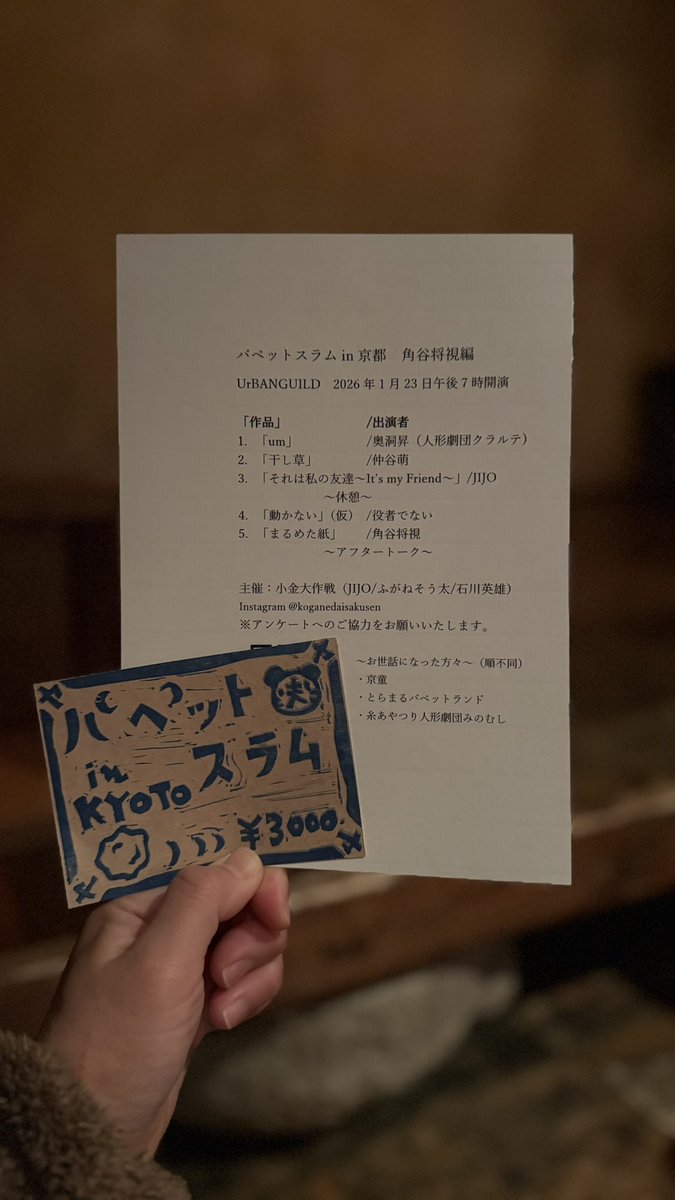 パペットスラム in 京都　角谷将視編
UrBANGUILD　2026 年 1 月 23 日午後 7 時開演
「作品」　/出演者
1. 「um」　/奥洞昇（人形劇団クラルテ）
2. 「干し草」　/仲谷萌
3. 「それは私の友達〜It's my Friend〜」/JIJO
〜休憩〜
4. 「動かない」（仮）　/役者でない
5. 「まるめた紙」　/角谷将視
〜アフタートーク〜
主催：小金大作戦（JIJO/ふがねそう太/石川英雄）
Instagram @koganedaisakusen
※アンケートへのご協力をお願いいたします。
〜お世話になった方々〜（順不同）
・京童
・とらまるパペットランド
・糸あやつり人形劇団みのむし
パペット
in
スラム
KYOTO
¥3000